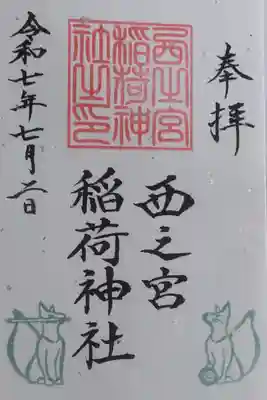 奉拝
西之宮
稲荷神社
令和七年七月二日
西之宮
稲荷神
社之印